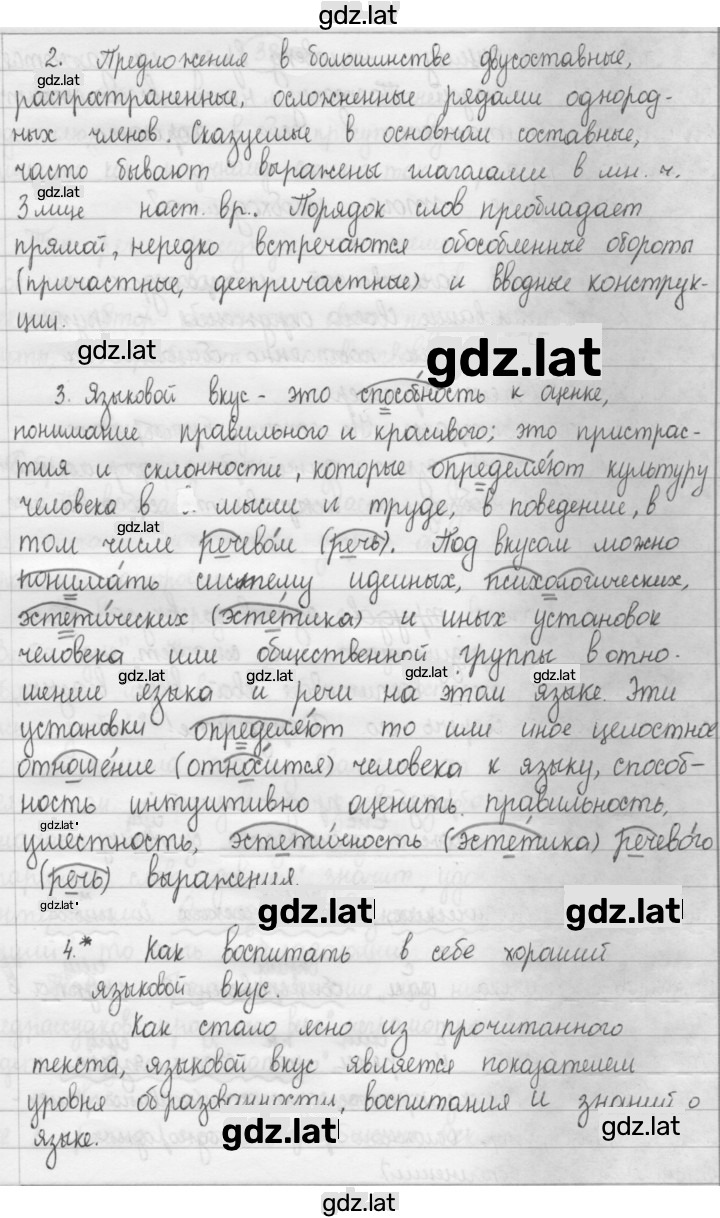 gdz.lat
2. Предложения в большинстве двусоставные,
gdz.lat
распространенные, осложненные рядами однород-
ных членов. Сказуемые в основном составные,
часто бывают выражены глаголами в мн. ч.
gdz.lat
3 лице наст. вр.. Порядок слов преобладает
прямой, нередко встречаются обособленные обороты
(причастные, деепричастные) и вводные конструк-
ции.
gdz.lat
gdz.lat
3. Языковой вкус - это способность к оценке,
понимание правильного и красивого; это пристрас-
тия и склонности, которые определяют культуру
человека в мысли и труде, в поведении, в
gdz.lat
том числе речевом (речь). Под вкусом можно
понимать систему идейных, психологических,
эстетических (эстетика) и иных установок
человека или общественной группы в отно-
gdz.lat gdz.lat gdz.lat
шение языка и речи на этом языке. Эти
установки определяют то или иное целостное
отношение (относится) человека к языку, способ-
ность интуитивно оценить правильность,
gdz.lat
уместность, эстетичность (эстетика) речевого
(речь) выражения
gdz.lat
gdz.lat gdz.lat
4.* Как воспитать в себе хороший
языковой вкус.
Как стало ясно из прочитанного
текста, языковой вкус является показателем
уровня образованности, воспитания и знаний о
языке.
gdz.lat gdz.lat
gdz.lat